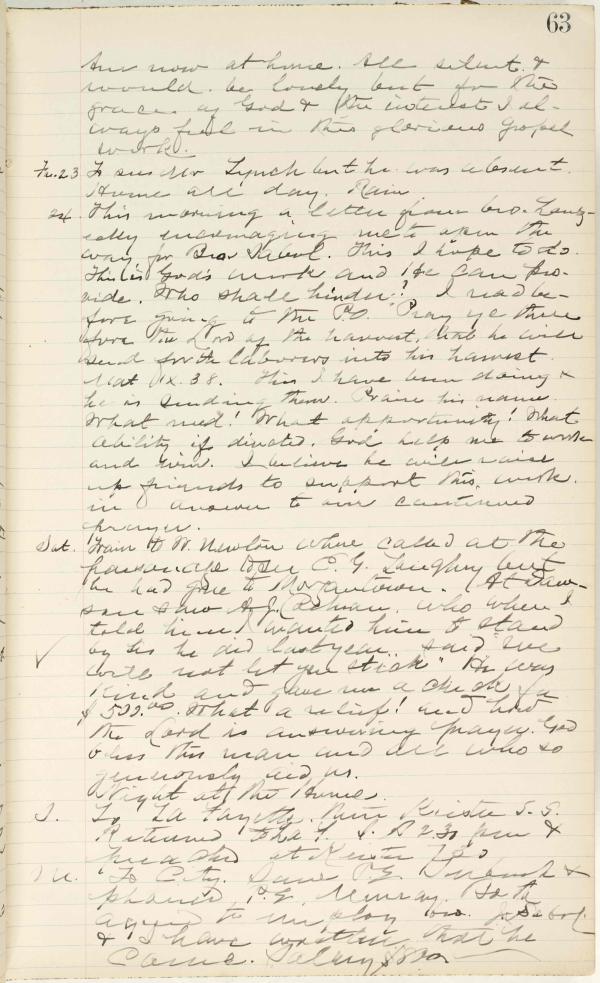 63
Am now at home. All silent &
would be lonely but for the
grace of God & the interest I al-
ways feel in this glorious gospel
work.
Fr. 23 To see Mr Lynch but he was absent.
Home all day. Rain
24. This morning a letter from bro.
encouraging me to open the
way for Bro Sabol. This I hope to do.
This is God's work and He can pro-
vide. Who shall hinder? I read be-
fore going to the P.O. "Pray ye there
fore the Lord of the harvest, that he will
send forth laborers into his harvest.
Mat IX. 38. This I have been doing &
he is sending them. Praise his name.
What need! What opportunity! What
ability if divided. God help me to work
and win. I believe he will raise
up friends to support this work.
in answer to our continued
prayer.
Sat. Train to W. Newton where called at the
parsonage to see C. G. but
he had gone to Morgantown. At Daw-
son saw A. J. who when I
told him I wanted him to stand
by us as he did last year, said "We
will not let you stick" He was
kind and gave me a check for
$500.00. What a relief! and how
the Lord is answering prayer. God
bless this man and all who so
generously aid us.
Night at the Home.
S. To La Fayette, then Keister S.S.
Returned to the 2 30 pm &
preached at Keister 7 30
M. To City. Saw P.E. &
phoned P.E. Murray. Both
agree to employ bro. J. Sabol
& I have written that he
come. Salary